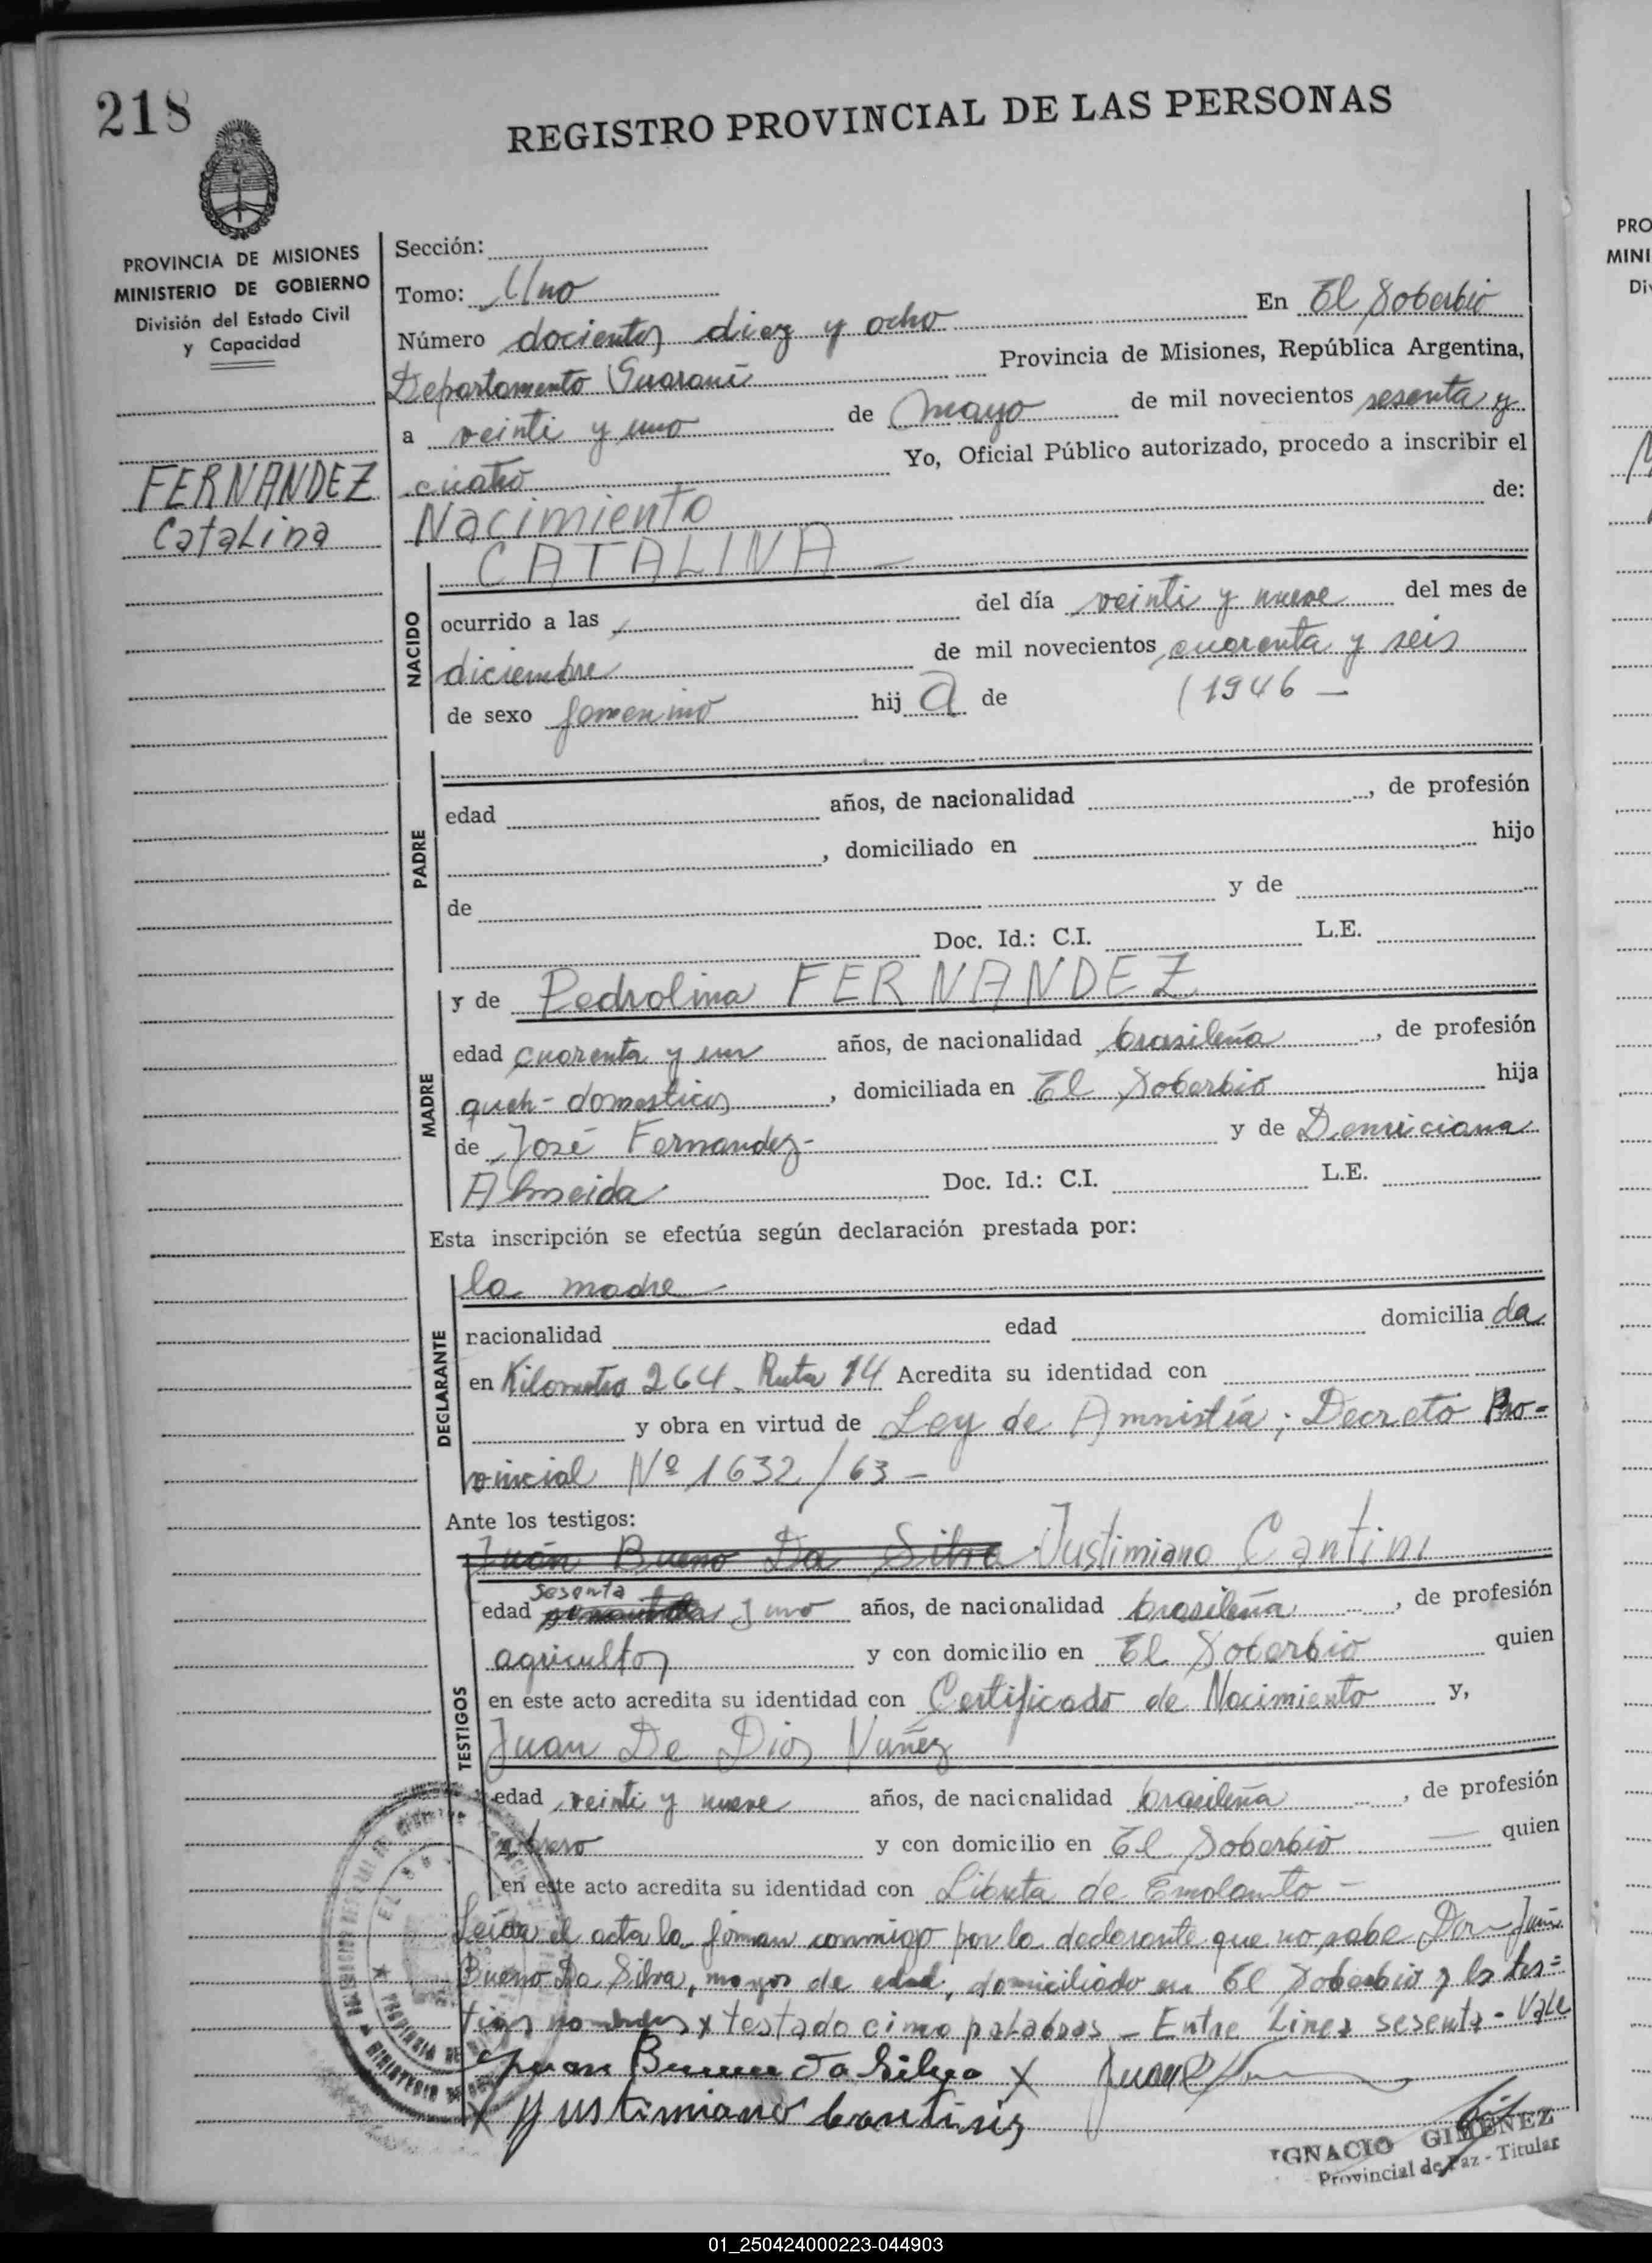 218
REGISTRO PROVINCIAL DE LAS PERSONAS
PROVINCIA DE MISIONES
MINISTERIO DE GOBIERNO
División del Estado Civil
y Capacidad
FERNANDEZ
Catalina
Sección:
Tomo: Uno
Número docientos diez y ocho En El Soberbio
Departamento Guaraní Provincia de Misiones, República Argentina,
a veinti y uno de mayo de mil novecientos sesenta y
cuatro Yo, Oficial Público autorizado, procedo a inscribir el
Nacimiento de:
CATALINA
NACIDO
ocurrido a las del día veinti y nueve del mes de
diciembre de mil novecientos cuarenta y seis
de sexo femenino hij a de (1946 —
PADRE
edad años, de nacionalidad , de profesión
, domiciliado en hijo
de y de
Doc. Id.: C.I. L.E.
MADRE
y de Pedrolina FERNANDEZ
edad cuarenta y un años, de nacionalidad brasileña , de profesión
queh- domesticos , domiciliada en El Soberbio hija
de José Fernandez- y de
Almeida Doc. Id.: C.I. L.E.
Esta inscripción se efectúa según declaración prestada por:
DECLARANTE
la madre
nacionalidad edad domicilia da
en Kilometro 264 - Ruta 14 Acredita su identidad con
y obra en virtud de Ley de Amnistía; Decreto Pro=
vincial Nº 1632/63 —
Ante los testigos:
TESTIGOS
Juán Bueno Da Silva Justimiano Cantini
sesenta
edad y uno años, de nacionalidad brasileña , de profesión
agricultor y con domicilio en El Soberbio quien
en este acto acredita su identidad con Certificado de Nacimiento y,
Juan De Dios Nuñez
edad veinti y nueve años, de nacionalidad brasileña , de profesión
obrero y con domicilio en El Soberbio quien
en este acto acredita su identidad con Libreta de Enrolamto —
Leída el acta la firman conmigo por la declarante que no sabe Don Juan
Bueno Da Silva, mayor de edad, domiciliado en El Soberbio y los tes=
tigos x testado cinco palabras — Entre Linea sesenta - Vale
Juan Bueno da Silva X
X Justimiano Cantinis
IGNACIO GIMENEZ
Provincial de Paz - Titular
PRO
MINI
01_250424000223-044903